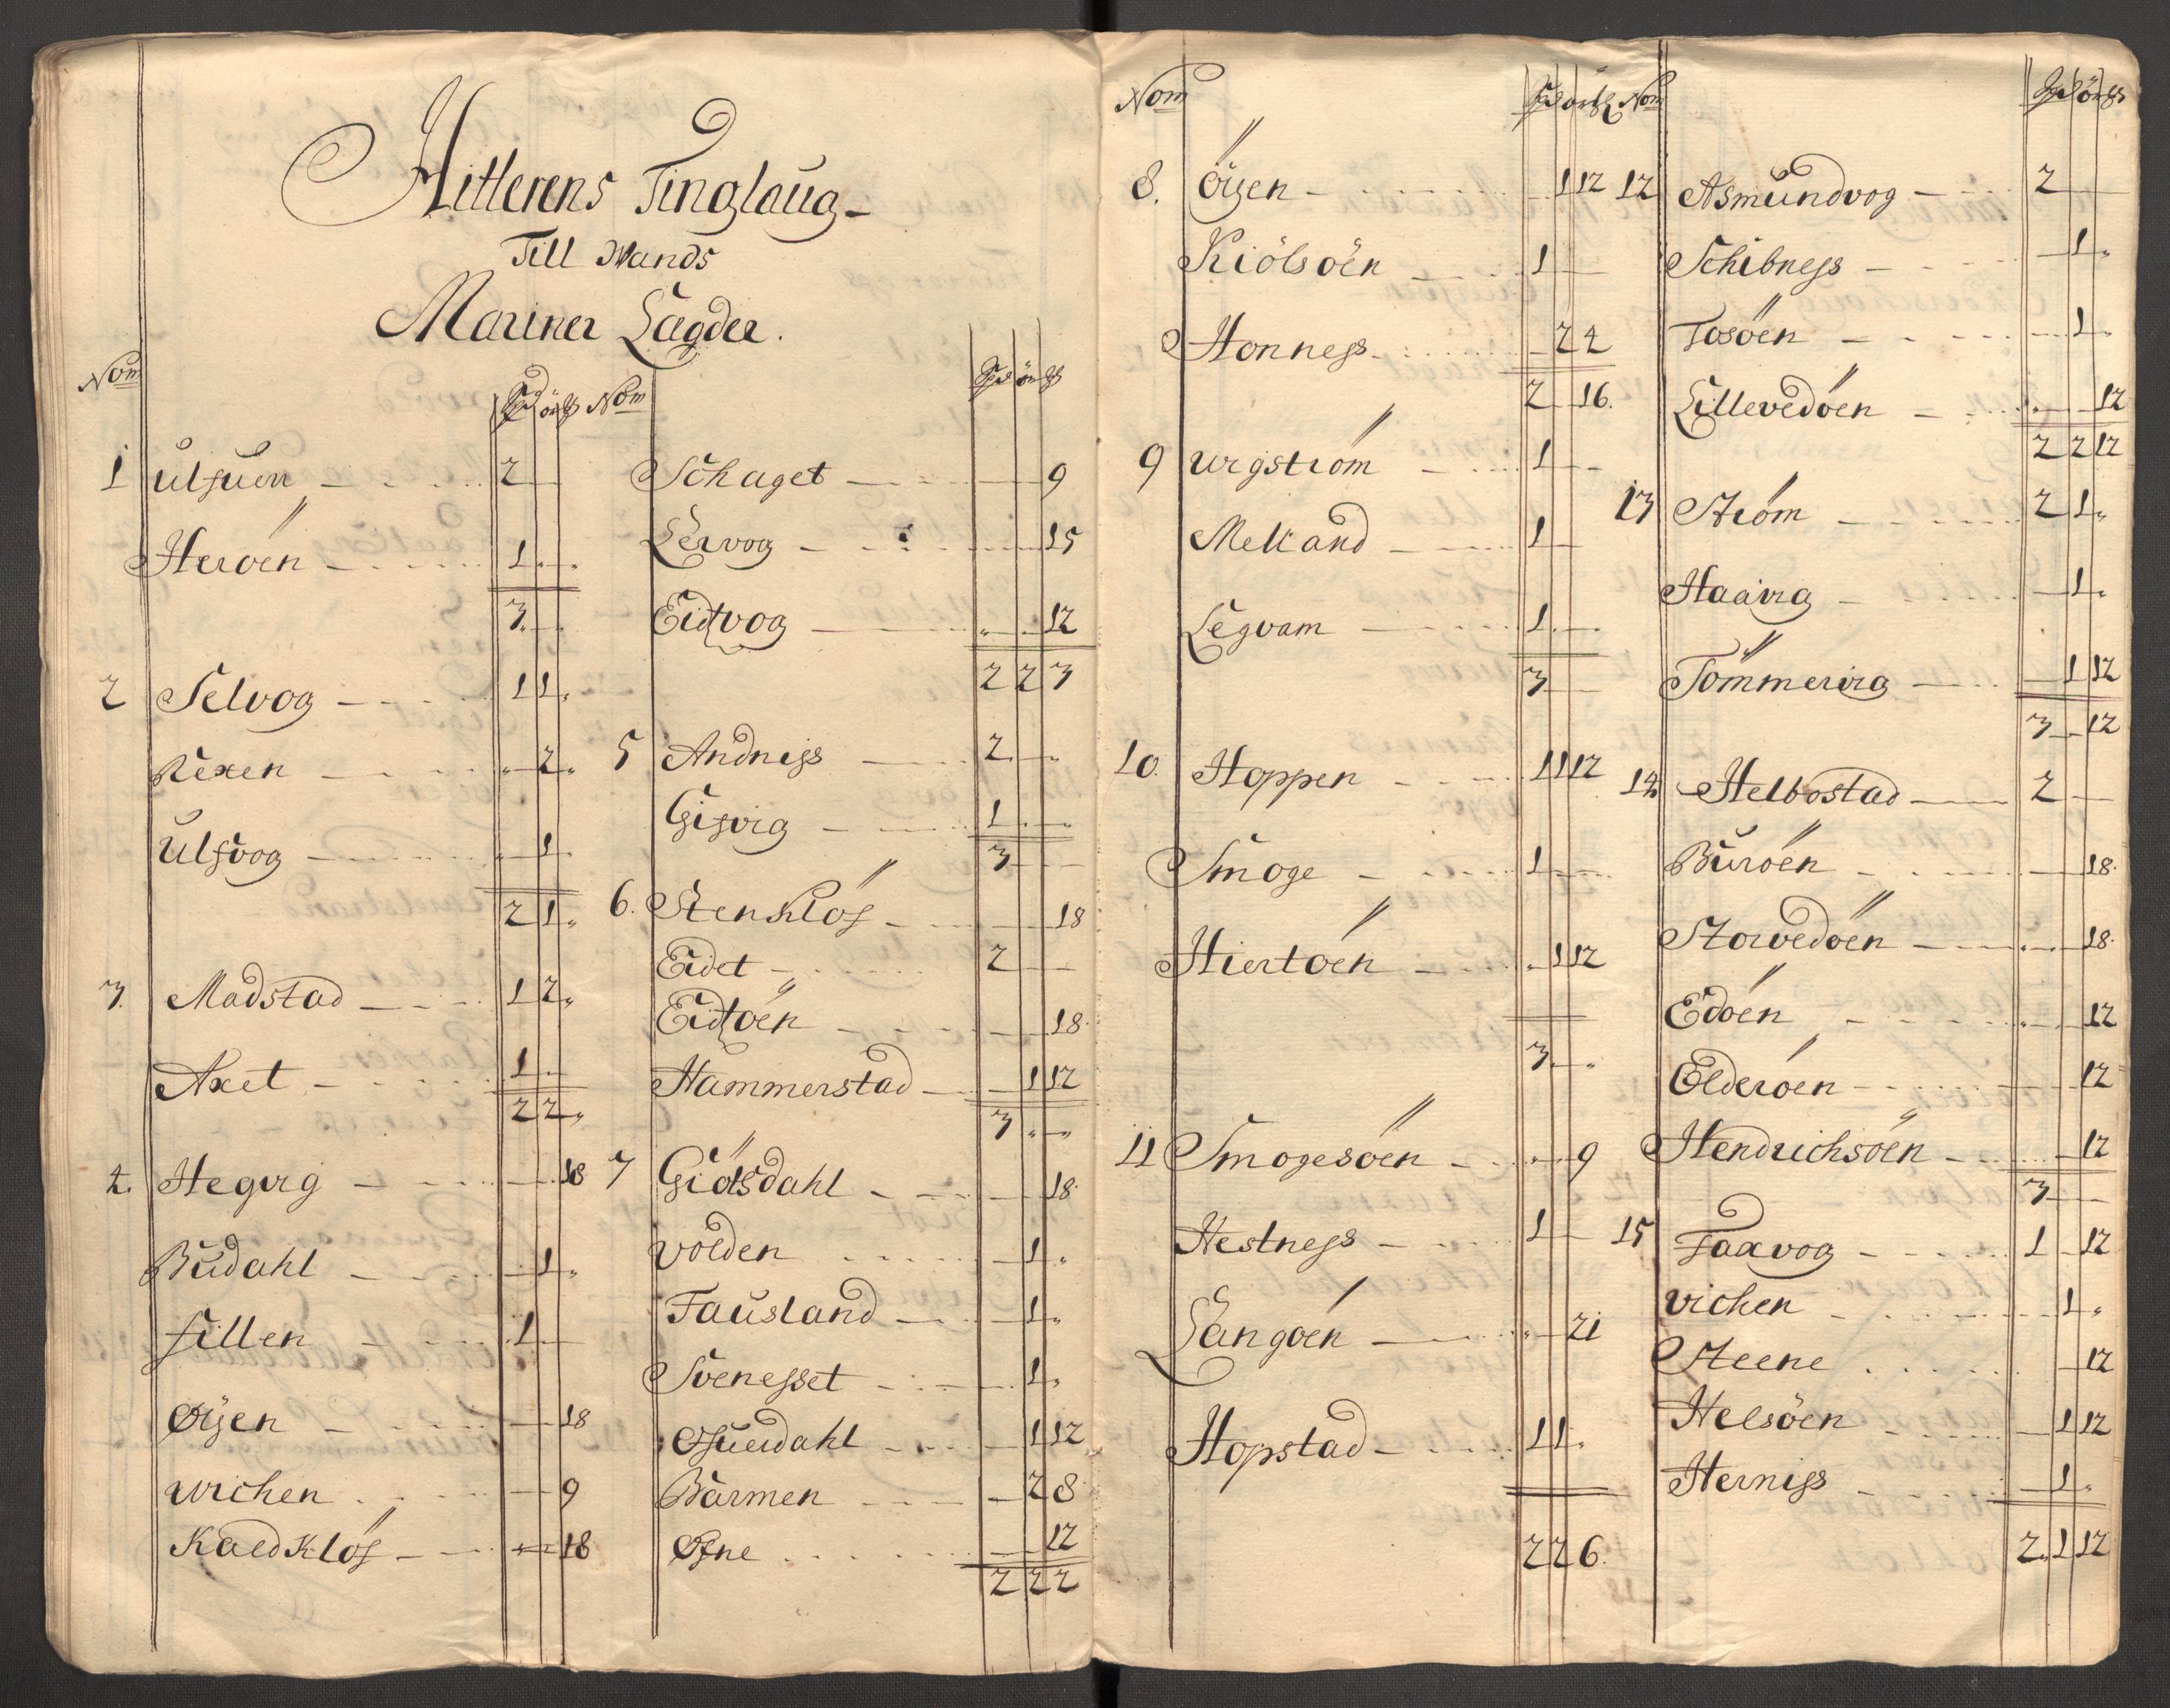 Hitterens Tinglaug
Till Mands
Mariner Lägder.
Nom
1 Ulfuen 2
Heröen 1
3
2 Selvog 1 1
Rexen 2
Ulfvog 1
2 1
3. Madstad 1 2
Axet 1
2 2
4. Hegvig 18
Büdahl 1
fillen 1
Øÿen 18
wichen 9
Kaldklöf 18
Nom
Schaget 9
Lervog 15
Eidtvog 12
2 2 3
5 Andness 2
Gisvig 1
3
6. Stenklöf 18
Eidet 2
Eidtöen 18
Hammerstad 1 12
3
7 Giösdahl 18
volden 1
Fausland 1
Svenesset 1
Ofuerdahl 1 12
Barmen 2 8
Øfne 12
2 2 2
Nom
8. öÿen 1 12
Kiölsöen 1
Honness 2 4
2 16.
9 urgström 1
Melland 1
Legvam 1
3
10. Hoppen 1 1 12
Smoge 1
Hiertöen 1 12
3
11 Smogesöen 9
Hestness 1
Langöen 21
Hopstad 1 1
2 2 6.
Nom
12 Asmundvog 2
Schibness 1
Tosöen 1
Lillevedöen 12
2 2 12
13 Ström 2 1
Haavig 1
Tömmervig 1 12
3 12
14 Helbostad 2
Büröen 18.
Storvedöen 18.
Edöen 12
Elderöen 12
Hendrichsöen 12
3
15 Faxvog 1 12
vichen 1
Steene 12
Helsöen 1 12
Herniss 1
2 1 12